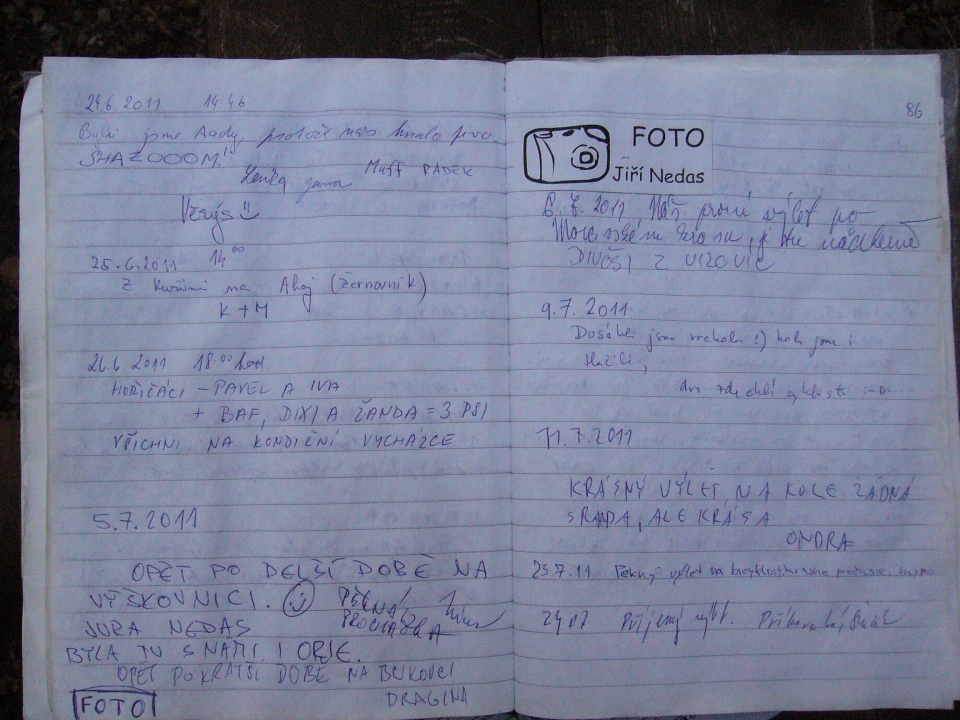 24.6.2011 14 46
Byli jsme tady, protože nás hnalo pivo
SHAZOOOM!!
Lenka Jana Muff RADEK
25.6.2011 14 00
z Kuřimi na Ahoj (Žernovník)
K + M
26.6 2011 18 00 hod
HOŘIČÁCI – PAVEL A IVA
+ BAF, DIXI A ŽANDA = 3 PSI
VŠICHNI NA KONDIČNÍ VYCHÁZCE
5.7.2011
OPĚT PO DELŠÍ DOBĚ NA
VÝŠKOVNICI.
PĚKNÁ
PROCHÁZKA
JURA NEDAS
BYLA TU S NÁMI I
OPĚT PO KRATŠÍ DOBĚ NA BUKOVCI
DRAGINA
FOTO
86
FOTO
Jiří Nedas
6.7.2011 Náš první výlet po
Moravském krasu, je tu nádherně
Z VIZOVIC
9.7.2011
Dosáhli jsme vrcholu :) kola jsme i
tlačili,
dva zdechlí cyklisti :-D
11.7.2011
KRÁSNÝ VÝLET, NA KOLE ŽÁDNÁ
SRANDA, ALE KRÁSA
ONDRA
23.7.11 Pěkný výlet na
24.07 Příjemný výlet.